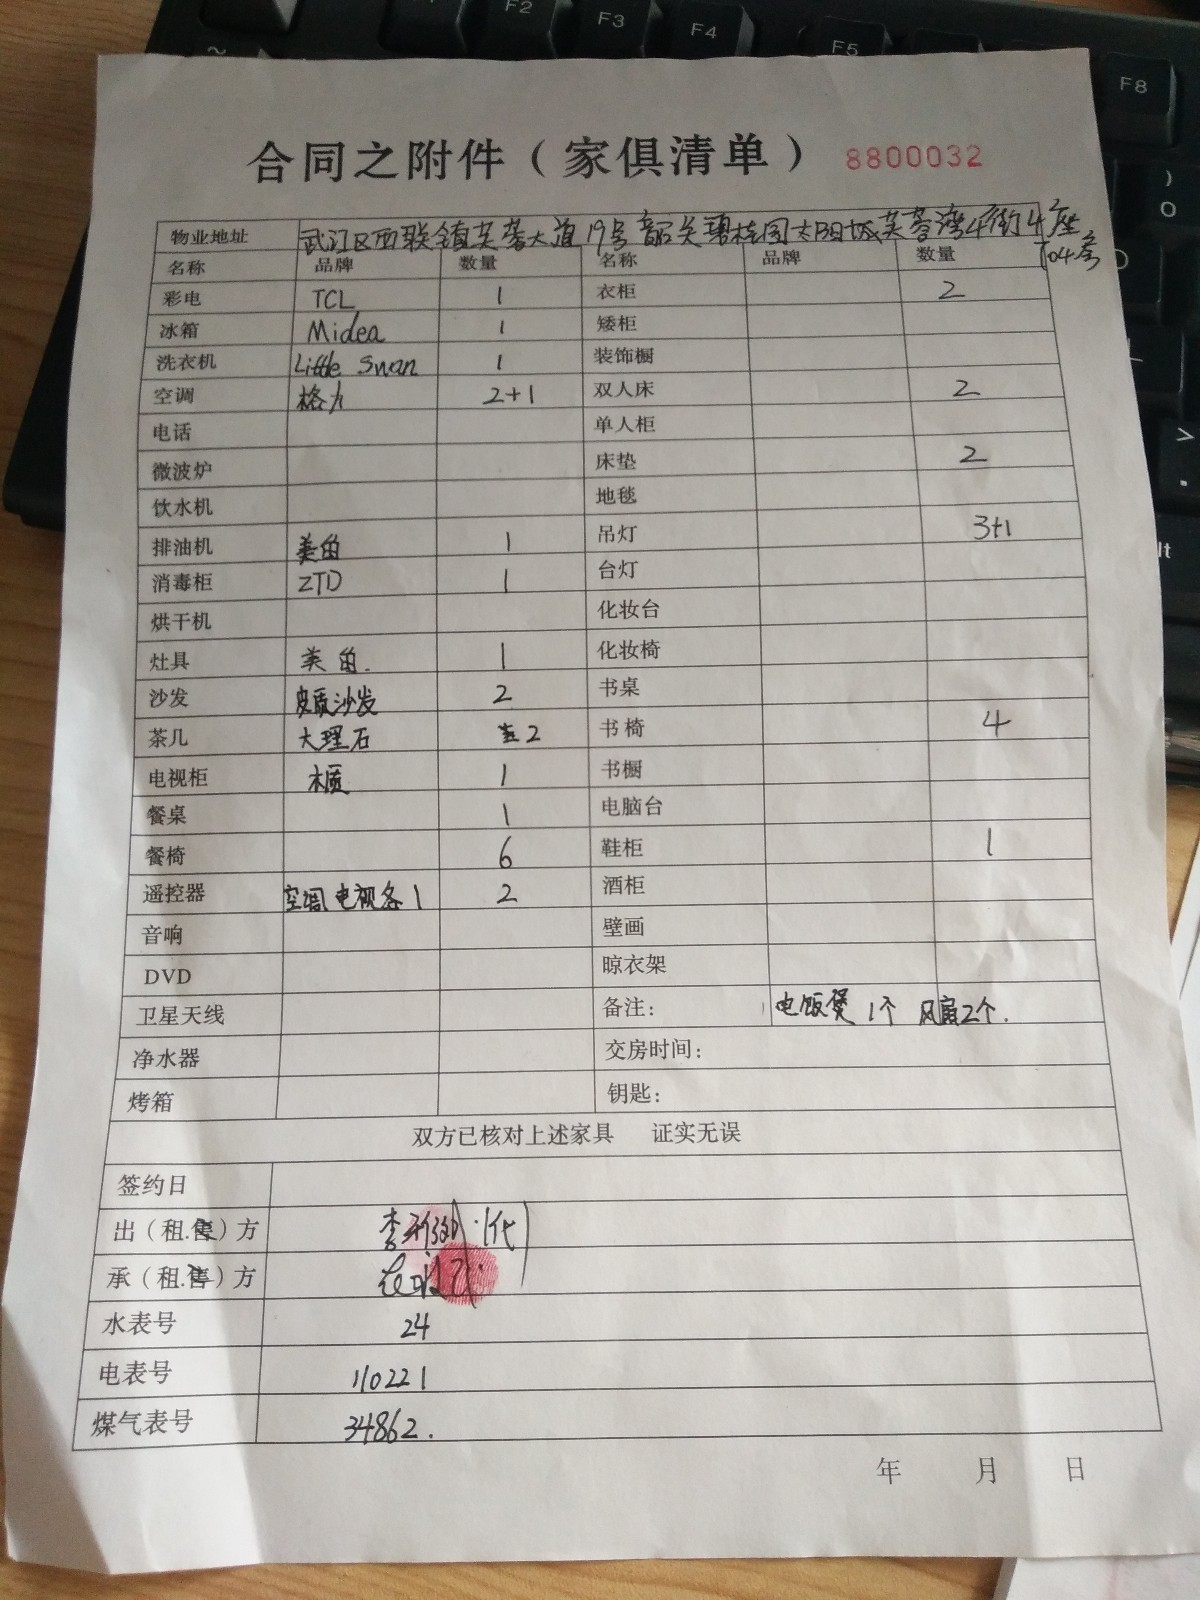 F2 F3 F4 F5 F8
合同之附件（家俱清单） 8800032
物业地址 武江区西联镇芙蓉大道19号韶关碧桂园太阳城芙蓉湾4街4座
704房
名称 品牌 数量 名称 品牌 数量
彩电 TCL 1 衣柜 2
冰箱 Midea 1 矮柜
洗衣机 Little Swan 1 装饰橱
空调 格力 2+1 双人床 2
电话 单人柜
微波炉 床垫 2
饮水机 地毯
排油机 美的 1 吊灯 3+1
消毒柜 ZTD 1 台灯
烘干机 化妆台
灶具 美的. 1 化妆椅
沙发 皮质沙发 2 书桌
茶几 大理石 2 书椅 4
电视柜 木质 1 书橱
餐桌 1 电脑台
餐椅 6 鞋柜 1
遥控器 空调电视各1 2 酒柜
音响 壁画
DVD 晾衣架
卫星天线 备注： 电饭煲1个 风扇2个.
净水器 交房时间：
烤箱 钥匙：
双方已核对上述家具 证实无误
签约日
出（租.售）方 李 (代)
承（租.售）方
水表号 24
电表号 110221
煤气表号 34862.
年 月 日